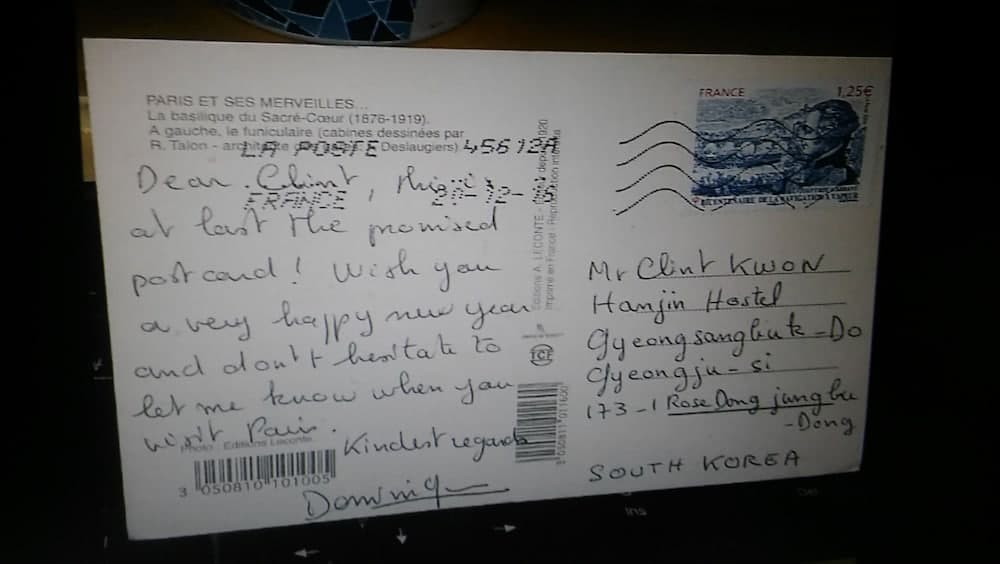 PARIS ET SES MERVEILLES...
La basilique du Sacré-Cœur (1876-1919).
A gauche, le funiculaire (cabines dessinées par
R. Talon - architecte Deslaugiers)
LA POSTE 45612A
FRANCE
Dear Clint, this is
at last the promised
postcard! Wish you
a very happy new year
and don't hesitate to
let me know when you
visit Paris.
Kindest regards
Dominique
Photo : Editions Leconte
3 050810 101005
Editions A. LECONTE - depuis 1920
Imprimé en France - Reproduction interdite
TCF
3 050811 011600
FRANCE 1,25€
BICENTENAIRE DE LA NAVIGATION À VAPEUR
Mr Clint KWON
Hanjin Hostel
Gyeongsangbuk-Do
Gyeongju-si
173-1 Rose Dong jungbu
-Dong
SOUTH KOREA
Ins
Del